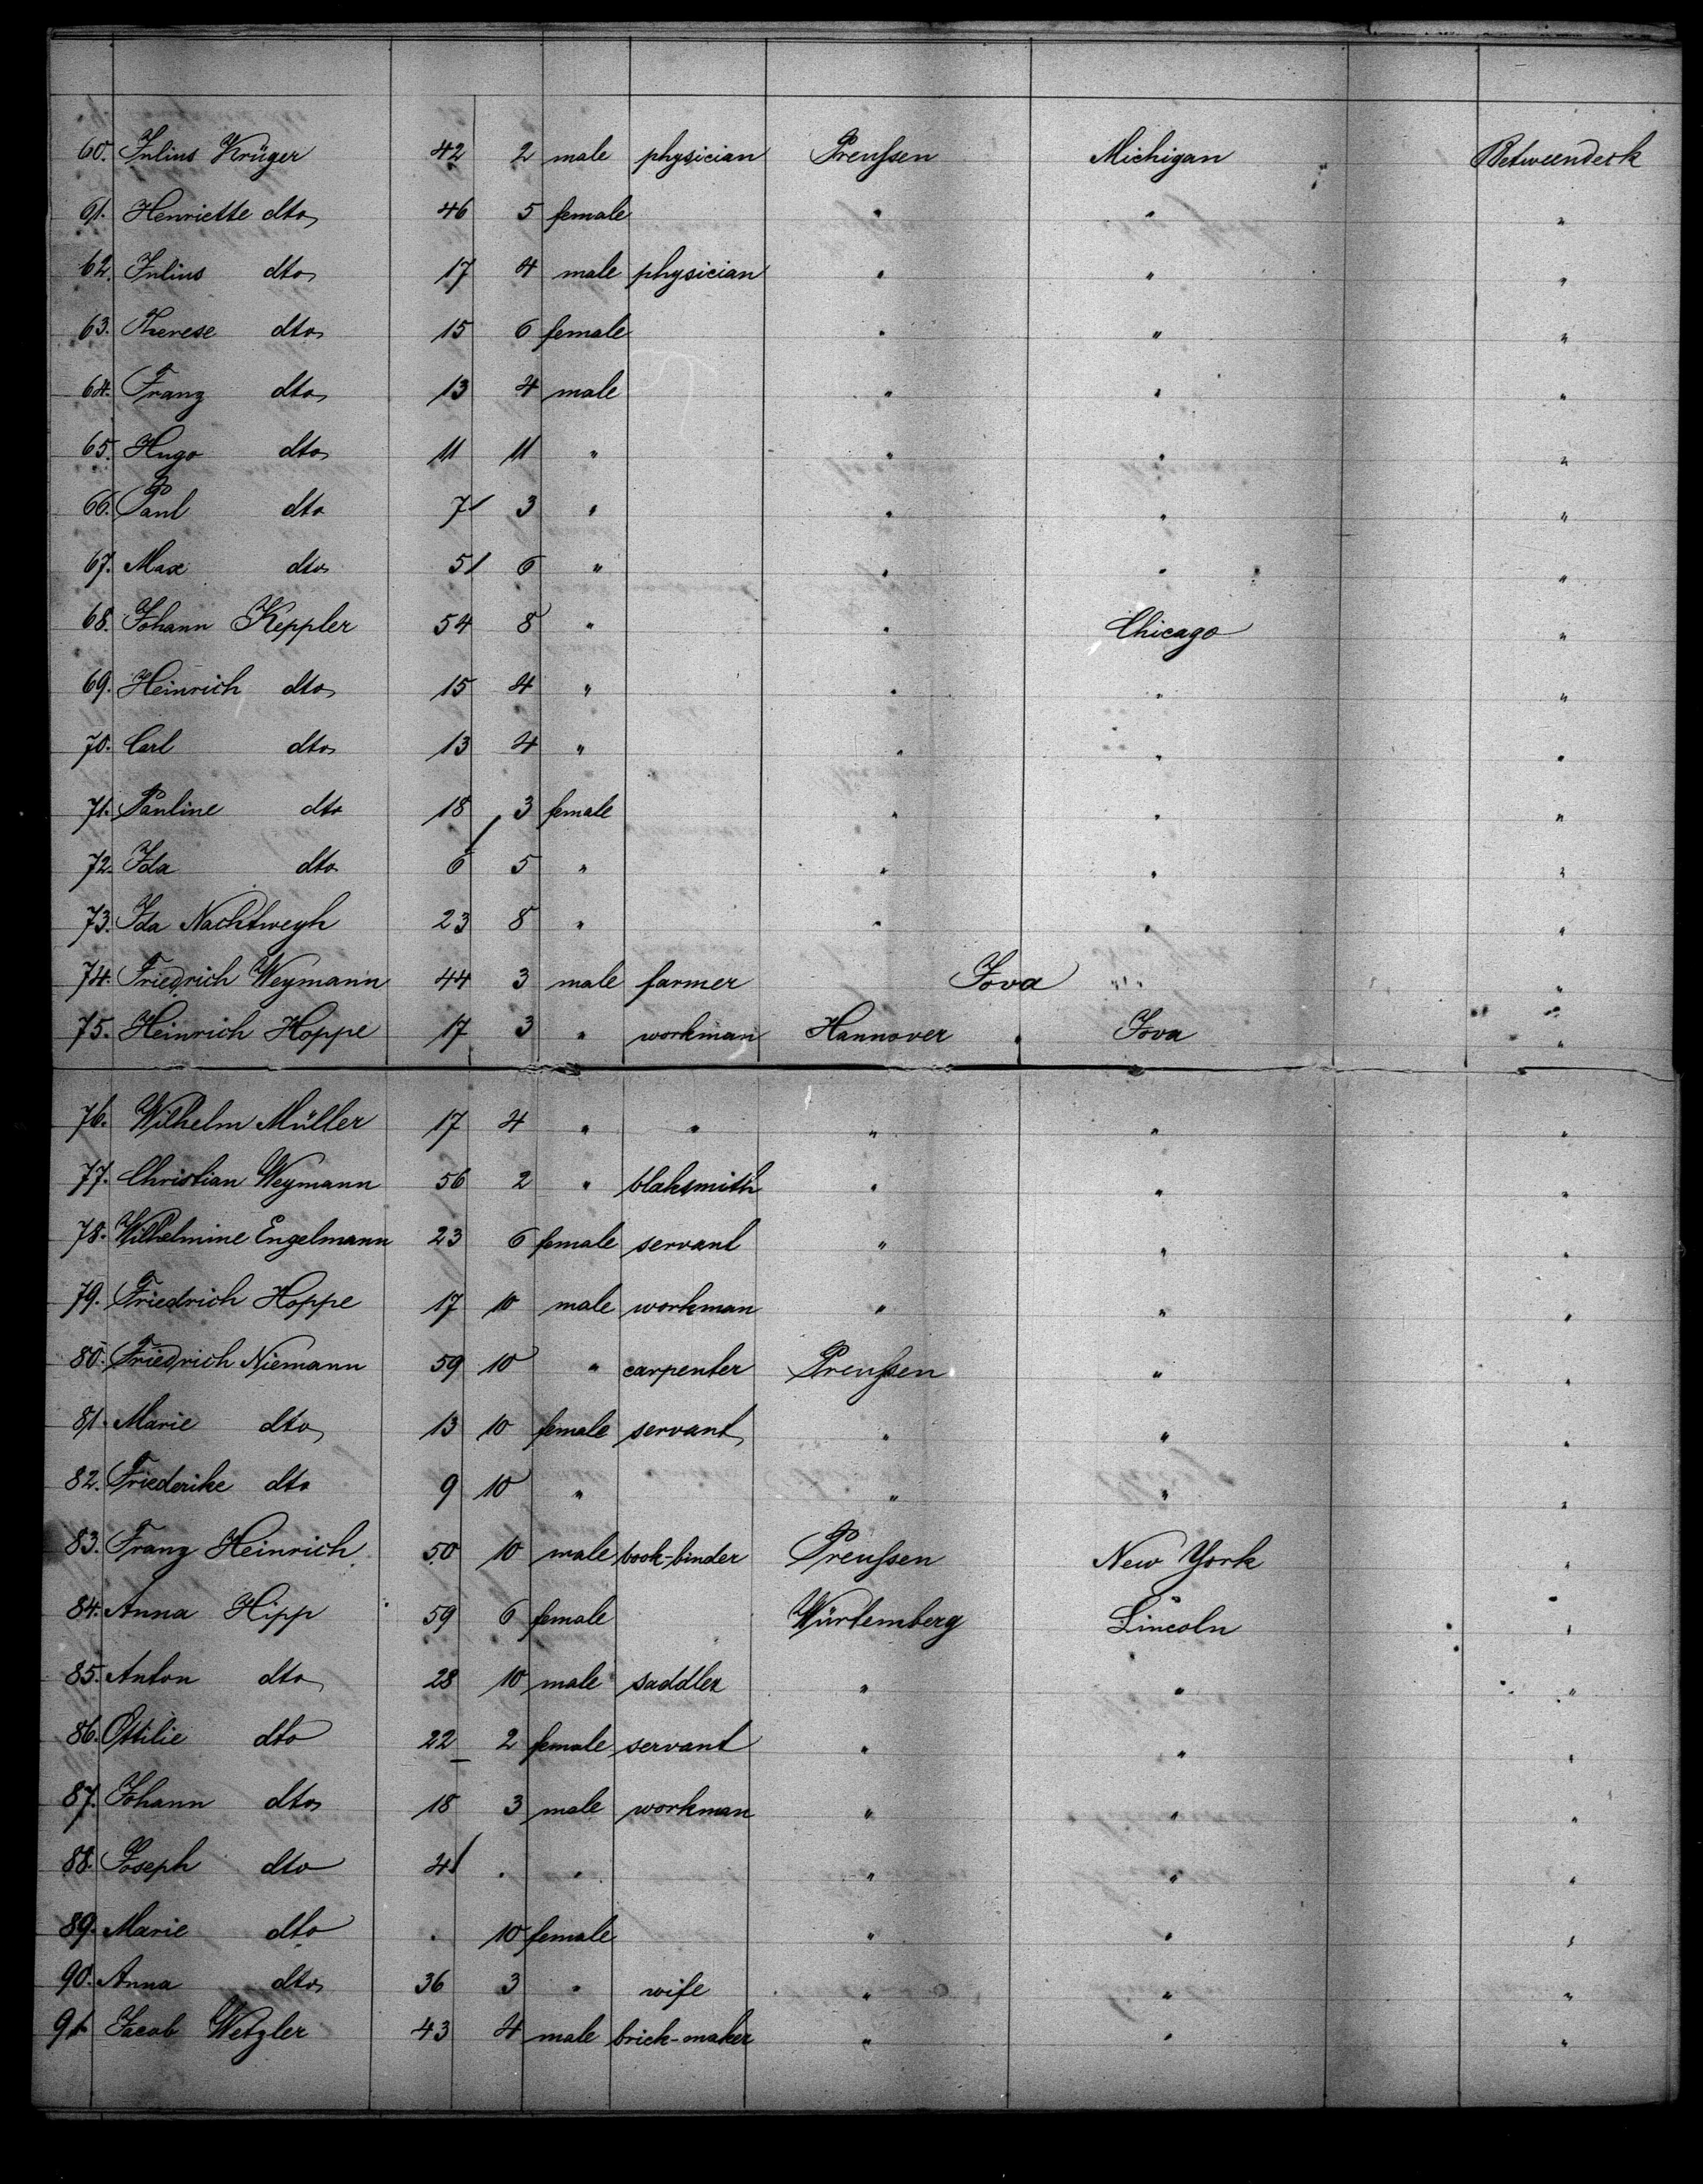 60. Julius Krüger 42 2 male physician Preußen Michigan Betweendeck
61. Henriette dto 46 5 female " " "
62. Julius dto 17 4 male physician " " "
63. Therese dto 15 6 female " " "
64. Franz dto 13 4 male " " "
65. Hugo dto 11 11 " " " "
66. Paul dto 7 3 " " " "
67. Max dto 5 6 " " " "
68. Johann Keppler 54 8 " " Chicago "
69. Heinrich dto 15 4 " " " "
70. Carl dto 13 4 " " " "
71. Pauline dto 18 3 female " " "
72. Ida dto 6 5 " " " "
73. Ida Nachtweyh 23 8 " " " "
74. Friedrich Weymann 44 3 male farmer Iova " "
75. Heinrich Hoppe 17 3 " workman Hannover Iova "
76. Wilhelm Müller 17 4 " " " " "
77. Christian Weymann 56 2 " blaksmith " " "
78. Wilhelmine Engelmann 23 6 female servant " " "
79. Friedrich Hoppe 17 10 male workman " " "
80. Friedrich Niemann 59 10 " carpenter Preußen " "
81. Marie dto 13 10 female servant " " "
82. Friederike dto 9 10 " " " "
83. Franz Heinrich 50 10 male book-binder Preußen New York "
84. Anna Hipp 59 6 female Würtemberg Lincoln "
85. Anton dto 28 10 male saddler " " "
86. Ottilie dto 22 2 female servant " " "
87. Johann dto 18 3 male workman " " "
88. Joseph dto 4 . " " " "
89. Marie dto . 10 female " " "
90. Anna dto 36 3 " wife " " "
91. Jacob Wetzler 43 4 male brick-maker " " "